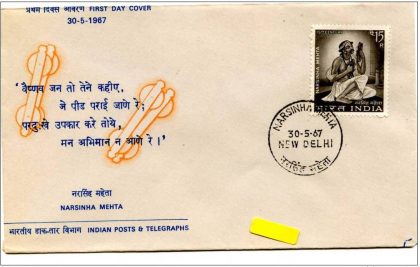 प्रथम दिवस आवरण FIRST DAY COVER
30-5-1967
'वैष्णव जन तो तेने कहीए,
जे पीड पराई जाणे रे;
परदुःखे उपकार करे तोये,
मन अभिमान न आणे रे।'
नरसिंह महेता
NARSINHA MEHTA
भारतीय डाक-तार विभाग INDIAN POSTS & TELEGRAPHS
15
NARSINHA MEHTA
भारत INDIA
NARSINHA MEHTA
30-5-67
NEW DELHI
नरसिंह महेता